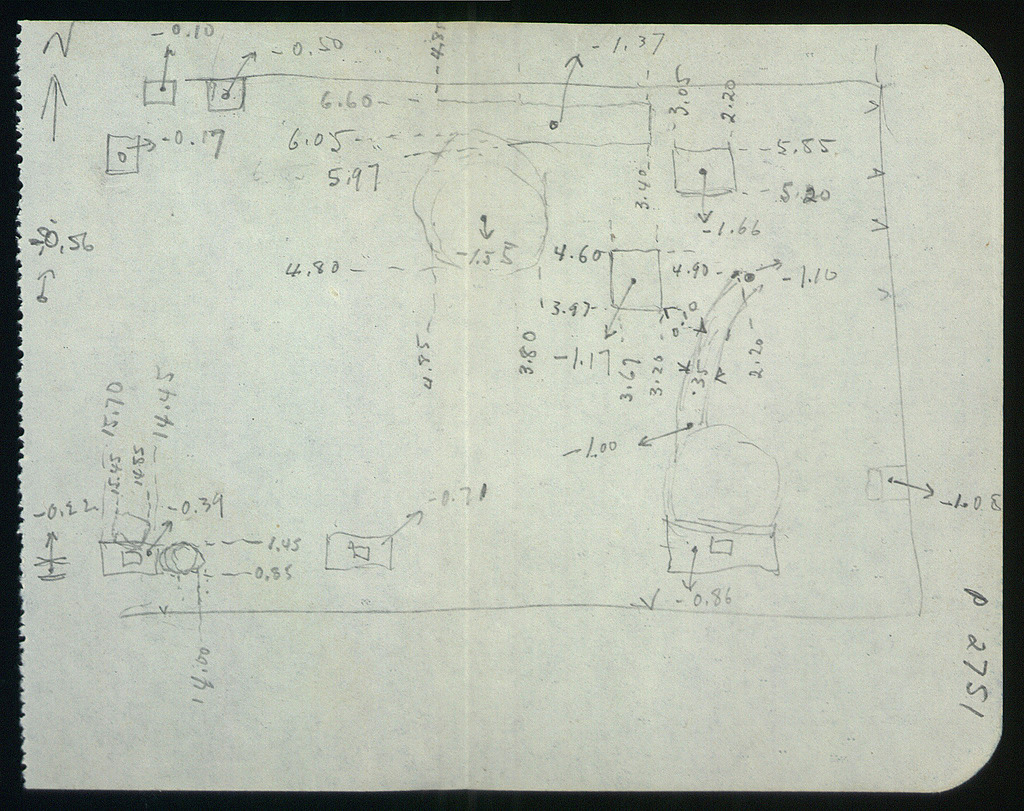 N
-0.10
-0.50
4.85
-1.37
6.60
3.05
2.20
6.05
-0.17
5.85
5.97
3.40
5.20
-1.66
-0.56
4.60
4.80
-1.55
4.90
-1.10
3.97
0.10
-1.17
4.85
3.80
3.67
3.20
.35
2.20
15.70
14.45
15.45
14.85
-1.00
-0.22
-0.39
-0.71
-1.03
1.45
0.85
-0.86
14.00
P 2751